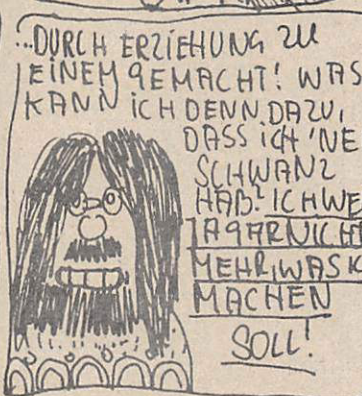 ...DURCH ERZIEHUNG ZU
EINEM GEMACHT! WAS
KANN ICH DENN DAZU,
DASS ICH 'NE
SCHWANZ
HAB? ICH WE
JA GARNICHT
MEHR, WAS K
MACHEN
SOLL!